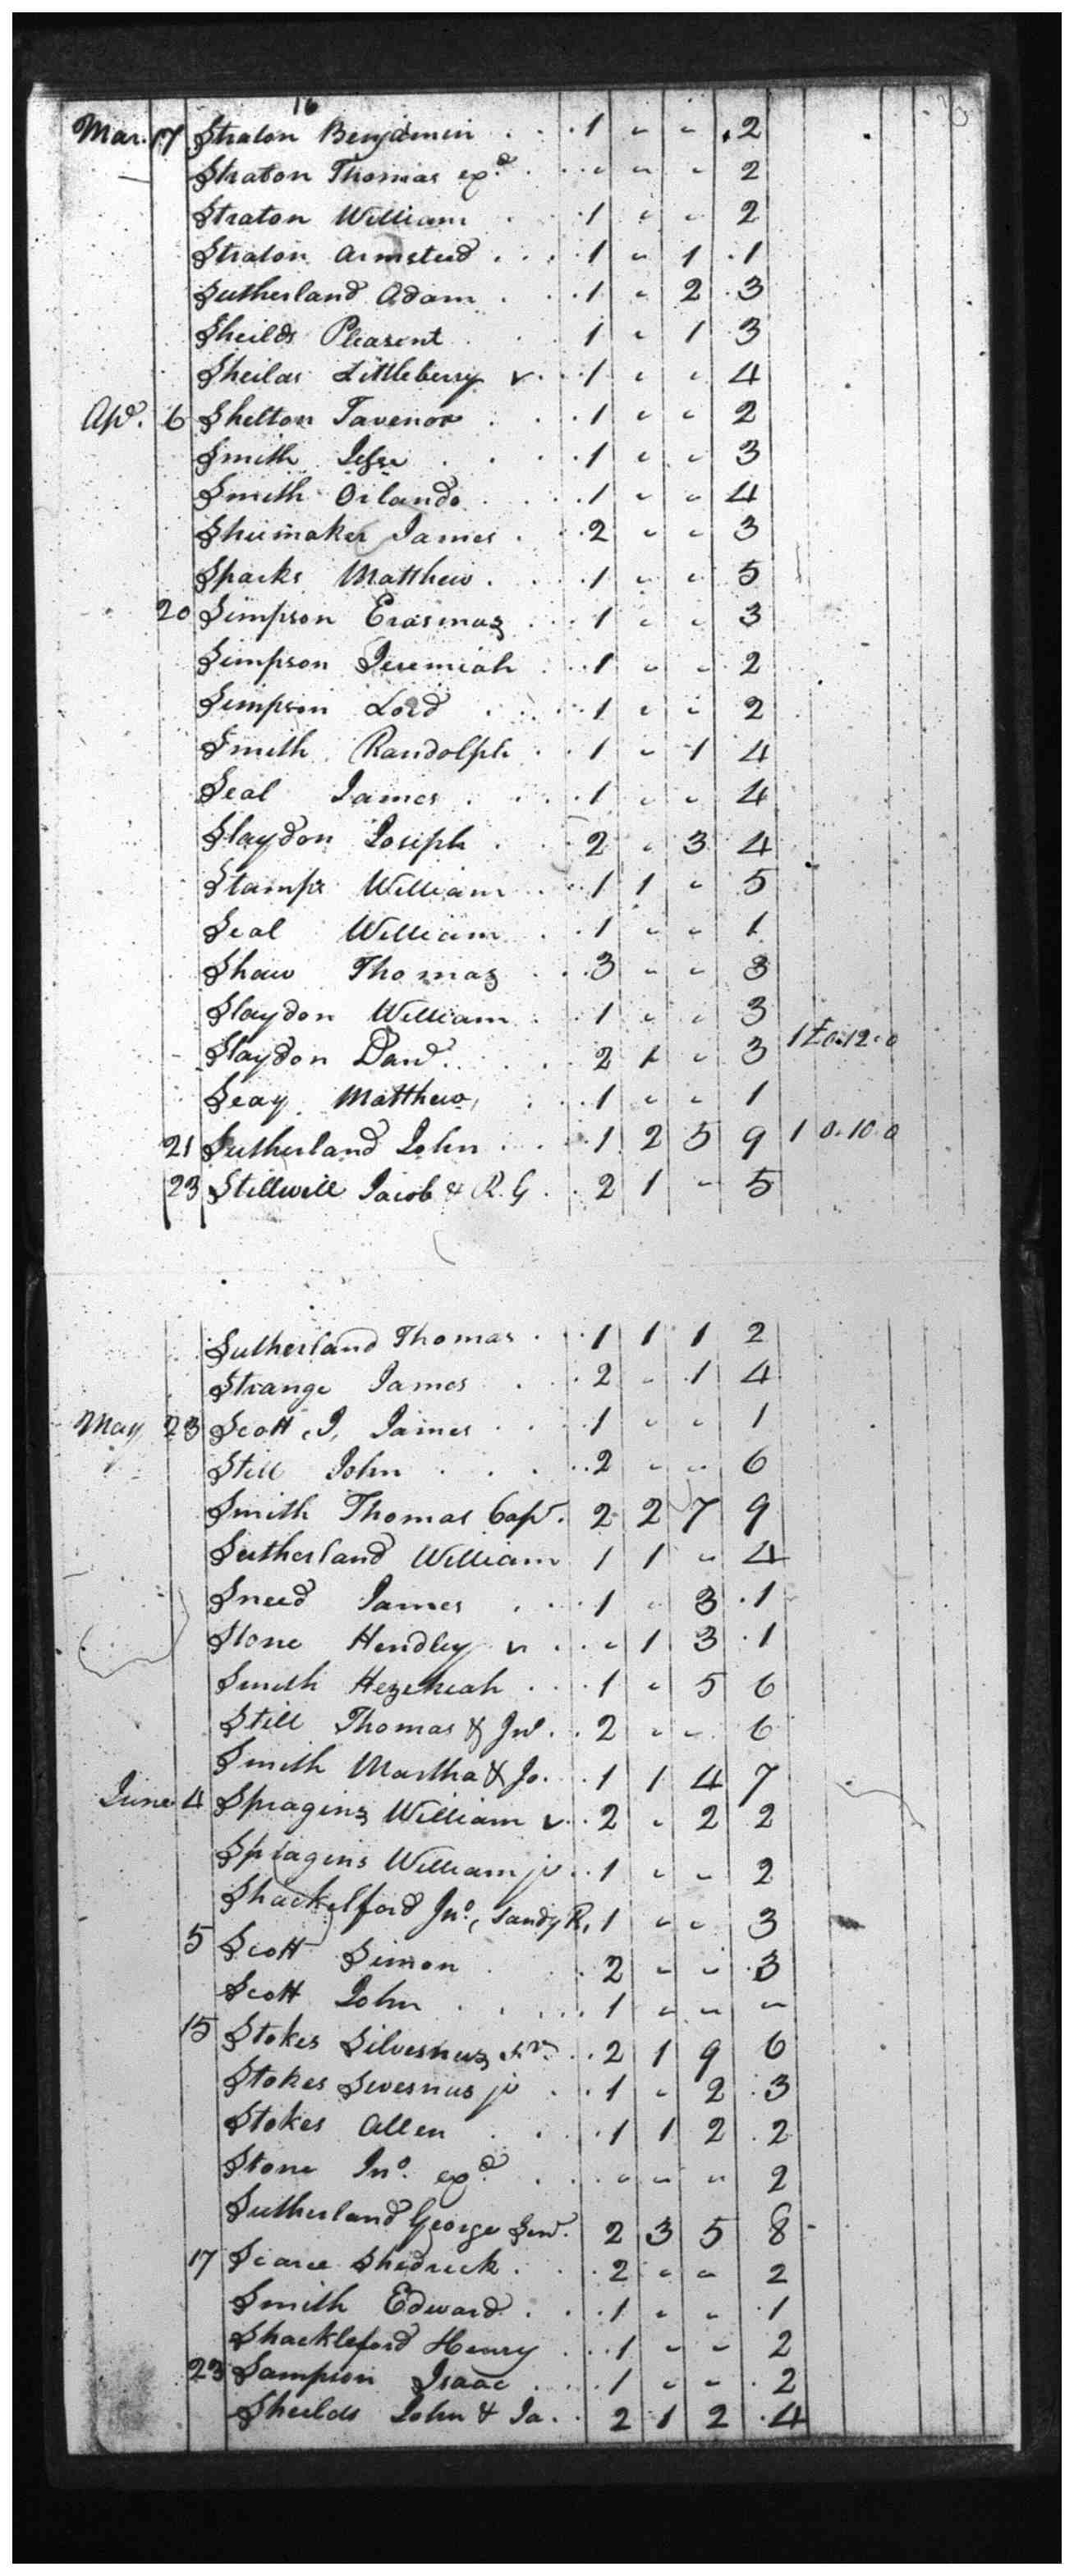 16
Mar. 17 Straton Benjamin . . . 1 - - . 2
Straton Thomas exd. . . . - - - 2
Straton William . . 1 - - 2
Straton Armsted . . . 1 - 1 . 1
Sutherland Adam . . . 1 - 2 . 3
Sheilds Pleasent . . . 1 - 1 3
Sheilds Littleberry v . . . 1 - - 4
Apl. 6 Shelton Tavenor . . 1 - - 2
Smith Jesse . . . 1 - - 3
Smith Orlando . . . 1 - - 4
Shumaker James . . . 2 - - 3
Sparks Matthew . . . 1 - - 5
20 Simpson Erasmus . . . 1 - - 3
Simpson Jeremiah . . . 1 - - 2
Simpson Lord . . . 1 - - 2
Smith Randolph . . 1 - 1 4
Seal James . . . 1 - - 4
Slaydon Joseph . . . 2 - 3 4
Stamps William . . . 1 1 - 5
Seal William . . 1 - - 1
Shaw Thomas . . . 3 - - 3
Slaydon William . . 1 - - 3
Slaydon Danl. . . . 2 1 - 3 1 £0.12.0
Seay Matthew, . . . 1 - - 1
21 Sutherland John . . . 1 2 5 9 1 0.10.0
23 Stillwell Jacob & R. G . . 2 1 - 5
Sutherland Thomas . . . 1 1 1 2
Strange James . . . 2 - . 1 4
May 23 Scott, J, James . . 1 - - 1
Still John . . . . 2 - - 6
Smith Thomas Capt. 2 2 7 9
Sutherland William 1 1 - 4
Sneed James . . . 1 - 3 . 1
Stone Hendley v . . - 1 3 . 1
Smith Hezekiah . . . 1 - 5 6
Still Thomas & Jno. . . 2 - - 6
Smith Martha & Jo. . . 1 1 4 7
June 4 Spragins William v . . 2 - 2 2
Spragins William jr . . 1 - - 2
Shackelford Jno., Sandy R, 1 - - 3
5 Scott Simon . . 2 - - . 3
Scott John . . . . 1 - - -
15 Stokes Silvesnus Sr. . . 2 1 9 6
Stokes Sivesnus jr . . 1 - 2 . 3
Stokes Allen . . . 1 1 2 . 2
Stone Jno. exd. . . . - - - 2
Sutherland George Senr. 2 3 5 8 -
17 Scarce Shedrick . . . 2 - - 2
Smith Edward . . . 1 - - . 1
Shackleford Henry . . . 1 - - 2
23 Sampson Isaac . . . 1 - - . 2
Sheilds John & Ja. . . 2 1 2 . 4